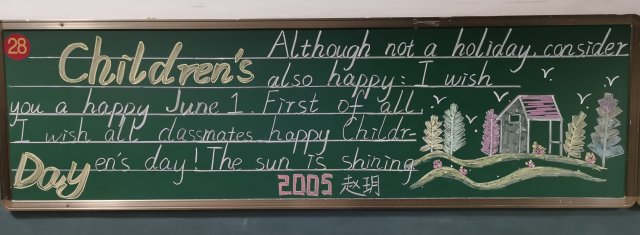 28
Children's
Day
Although not a holiday, consider
also happy: I wish
you a happy June 1. First of all,
I wish all classmates happy Childr-
en's day! The sun is shining
2005 赵玥